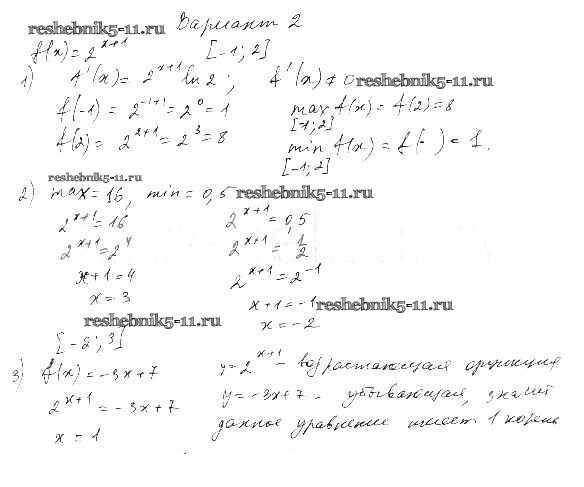 Вариант 2
reshebnik5-11.ru
f(x) = 2^{x+1} [-1; 2]
1) f'(x) = 2^{x+1} ln 2; f'(x) ≠ 0 reshebnik5-11.ru
f(-1) = 2^{-1+1} = 2^0 = 1 max f(x) = f(2) = 8
[-1; 2]
f(2) = 2^{2+1} = 2^3 = 8 min f(x) = f(- ) = 1.
[-1; 2]
reshebnik5-11.ru
2) max = 16, min = 0,5 reshebnik5-11.ru
2^{x+1} = 16 2^{x+1} = 0,5
2^{x+1} = 2^4 2^{x+1} = 1/2
x+1 = 4 2^{x+1} = 2^{-1}
x = 3 x+1 = -1 reshebnik5-11.ru
reshebnik5-11.ru x = -2
[-2; 3]
3) f(x) = -3x+7 y = 2^{x+1} - возрастающая функция
2^{x+1} = -3x+7 y = -3x+7 - убывающая, значит
x = 1 данное уравнение имеет 1 корень